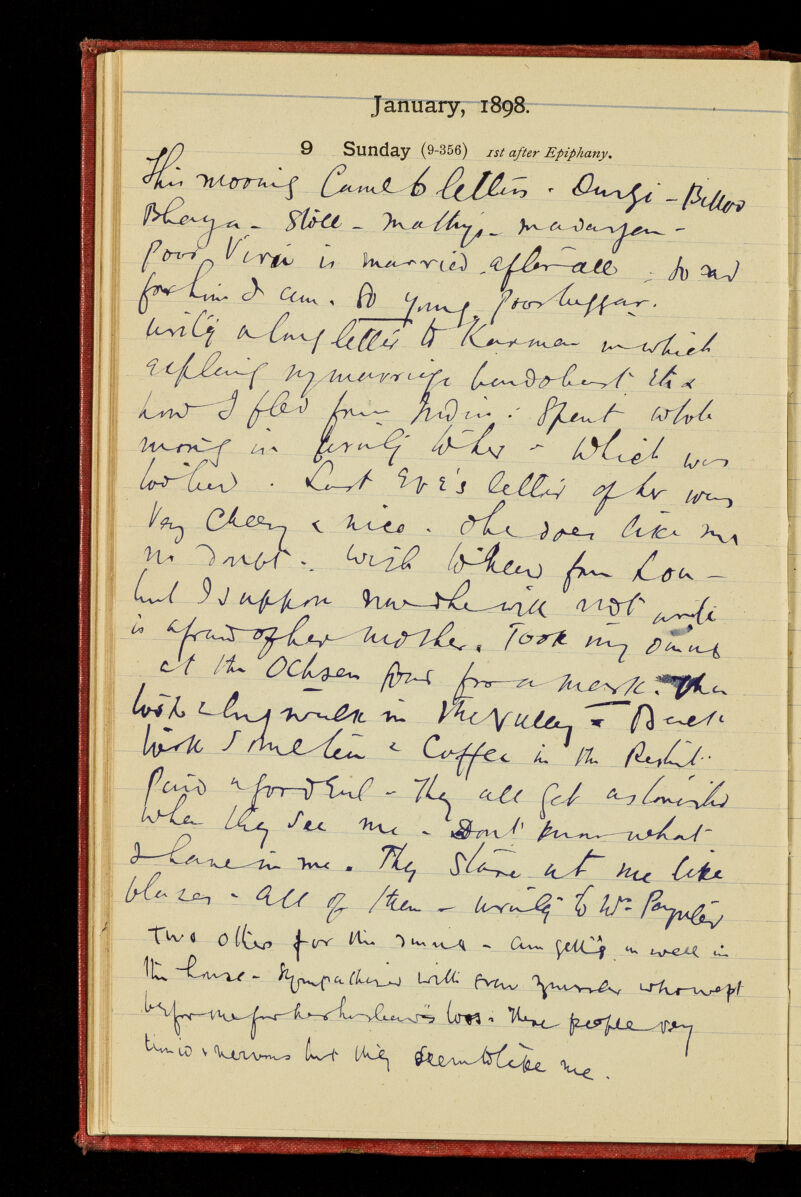 January, 1898.
9 Sunday (9-356) 1st after Epiphany.
This morning Came 6 letters. Durgi - Billoo
Bhaya - Stöll - Mathyi - madaryan -
Poor Viru is married after all. So sad
for him I am. So young poor buggar.
writing a long letter to Karman in which
explaing my marriage bandobast etc &
how I fled from India: Spent whole
morng in writing to her - Which was
to her. Last Eve's letter of her was
Very Cheery & nice. She does like me
no doubt. Wish to hear from Lou -
but I suppose now she will not write
is afraid of her mother. Took my dinner
at the Ochsen for a mark. Then
took a long walk in the valley - Back
took some tea & Coffee in the Restnt.
Paid a good - They all get astonished
when they see me - Dont know what
I have in me. They Stare at me like
blazes - all of them - writing to Wm Paynter
Two others for the - am gettig on well in
the house - Sympathised with Frau who wept
before me for her husband's loss: These people very
timid & nervous but they seem to like me.